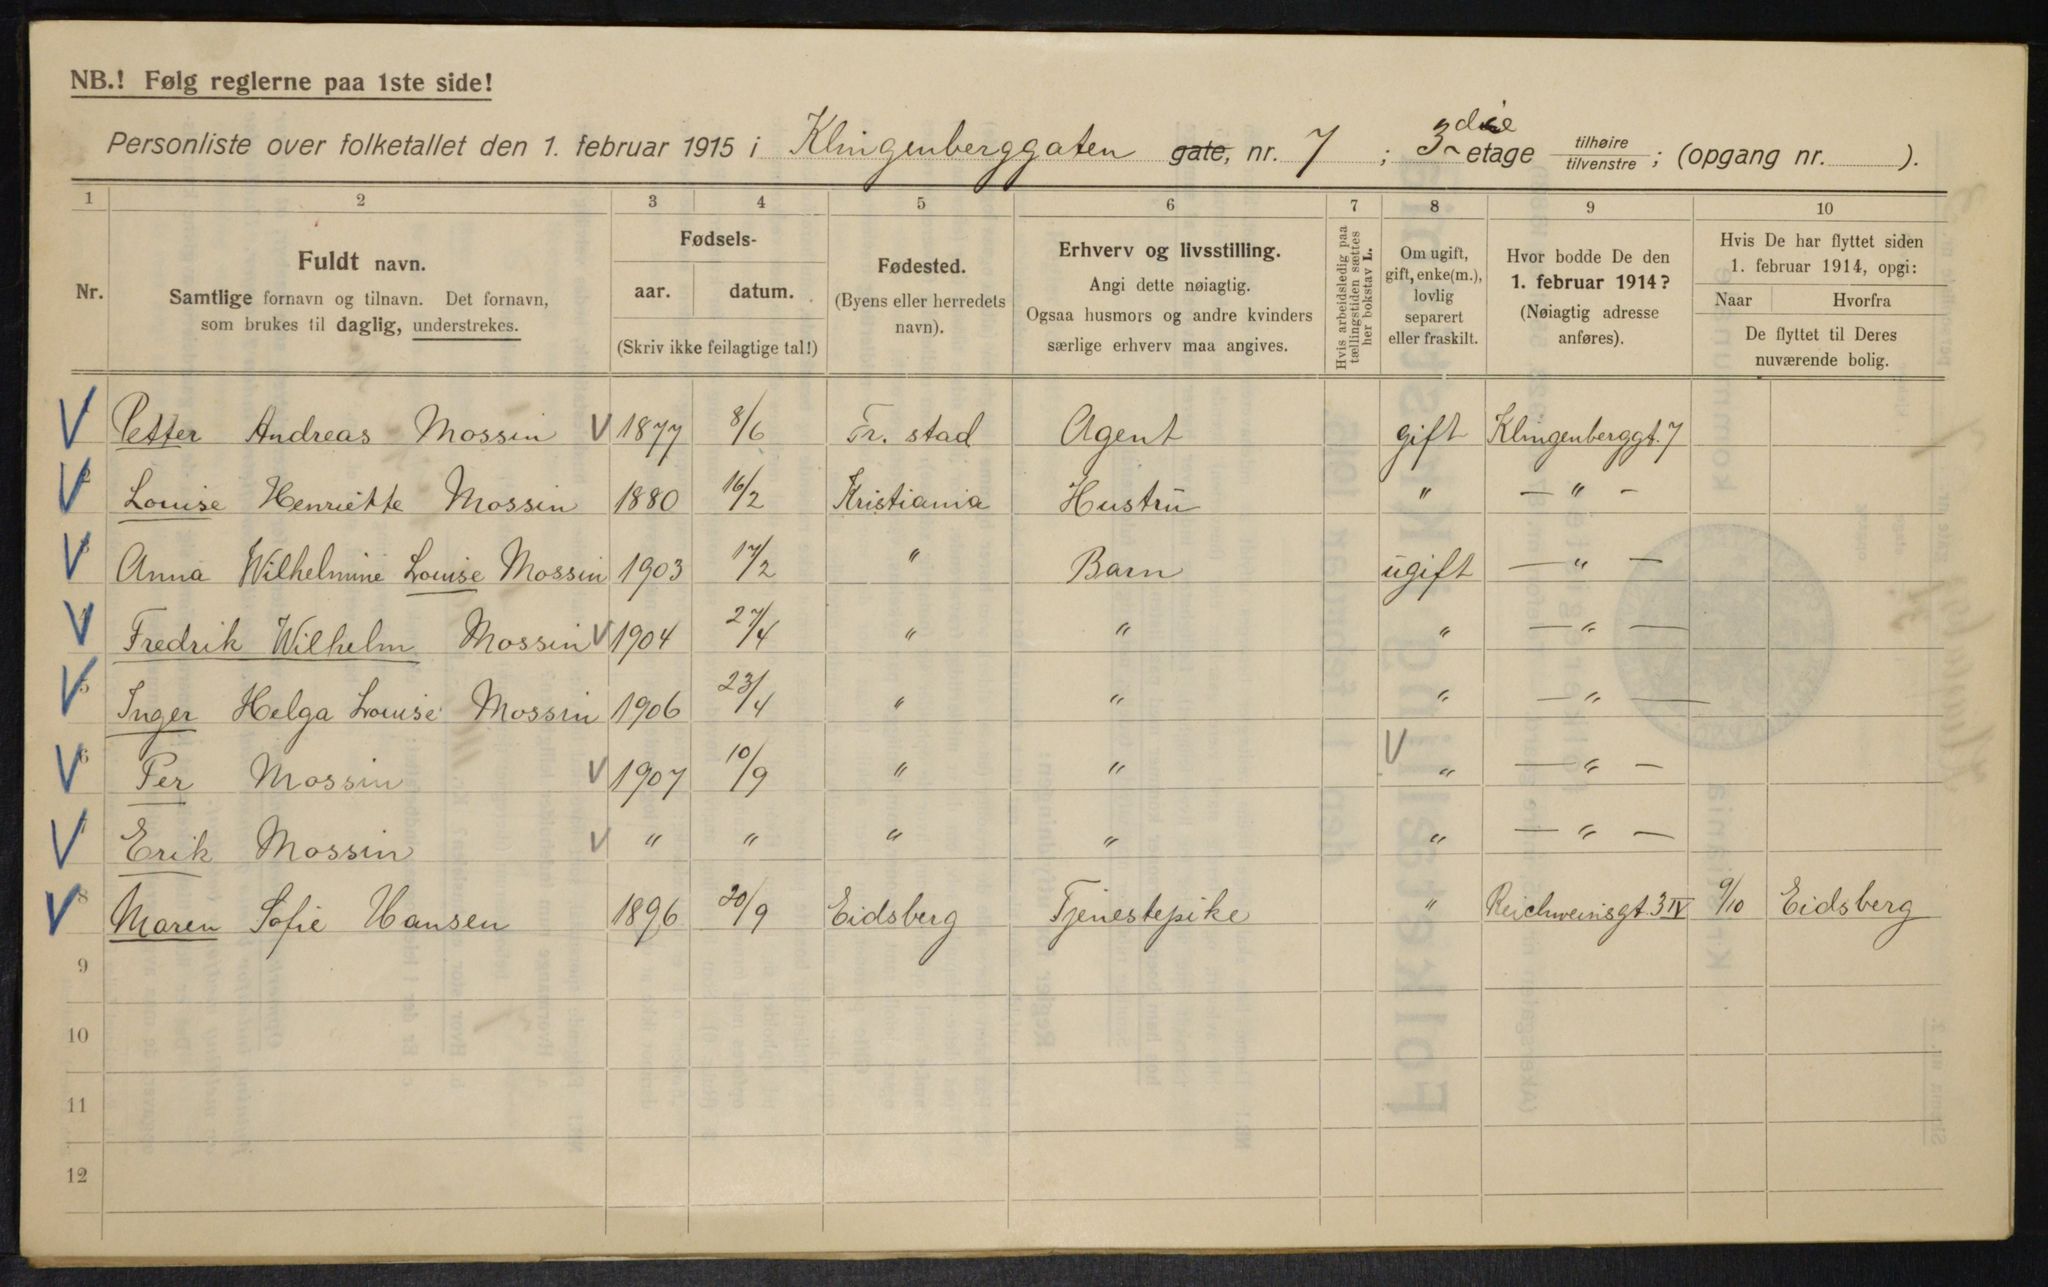 NB.! Følg reglerne paa 1ste side!
Personliste over folketallet den 1. februar 1915 i Klingenberggaten gate, nr. 7 ; 3die etage tilhøire / tilvenstre ; (opgang nr. ).
1 2 3 4 5 6 7 8 9 10
Nr.
Fuldt navn.
Samtlige fornavn og tilnavn. Det fornavn,
som brukes til daglig, understrekes.
Fødsels-
aar. datum.
(Skriv ikke feilagtige tal!)
Fødested.
(Byens eller herredets
navn).
Erhverv og livsstilling.
Angi dette nøiagtig.
Ogsaa husmors og andre kvinders
særlige erhverv maa angives.
Hvis arbeidsledig paa
tællingstiden sættes
her bokstav L.
Om ugift,
gift, enke(m.),
lovlig
separert
eller fraskilt.
Hvor bodde De den
1. februar 1914?
(Nøiagtig adresse
anføres).
Hvis De har flyttet siden
1. februar 1914, opgi:
Naar Hvorfra
De flyttet til Deres
nuværende bolig.
Petter Andreas Mossin V 1877 8/6 Fr. stad Agent gift Klingenberggt. 7
2 Louise Henriette Mossin 1880 16/2 Kristiania Hustru " — " —
3 Anna Wilhelmine Louise Mossin 1903 17/2 " Barn ugift — " —
4 Fredrik Wilhelm Mossin V 1904 27/4 " " " — " —
5 Inger Helga Louise Mossin 1906 23/4 " " " — " —
6 Per Mossin V 1907 10/9 " " V " — " —
7 Erik Mossin V " " " " " — " —
8 Maren Sofie Hansen 1896 20/9 Eidsberg Tjenestepike " Reichweinsgt. 3 IV 9/10 Eidsberg
9
10
11
12